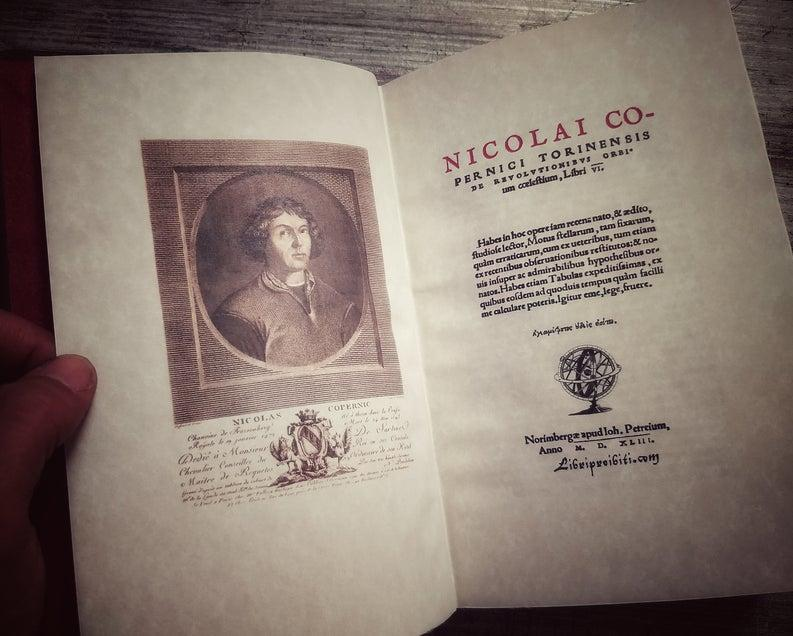 NICOLAS COPERNIC
Chanoine de Frauenberg
Dedié à Monsieur De Sartine
Chevalier Conseiller du Roi en ses Conseils
Maitre de Requetes
NICOLAI CO-
PERNICI TORINENSIS
DE REVOLVTIONIBVS ORBI-
um cœleſtium, Libri VI.
Habes in hoc opere iam recens nato, & ædito,
ſtudioſe lector, Motus ſtellarum, tam fixarum,
quàm erraticarum, cum ex ueteribus, tum etiam
ex recentibus obſeruationibus reſtitutos: & no-
uis inſuper ac admirabilibus hypotheſibus or-
natos. Habes etiam Tabulas expeditiſsimas, ex
quibus eoſdem ad quoduis tempus quàm facilli
me calculare poteris. Igitur eme, lege, fruere.
Norimbergæ apud Ioh. Petreium,
Anno M. D. XLIII.
Libriproibiti.com